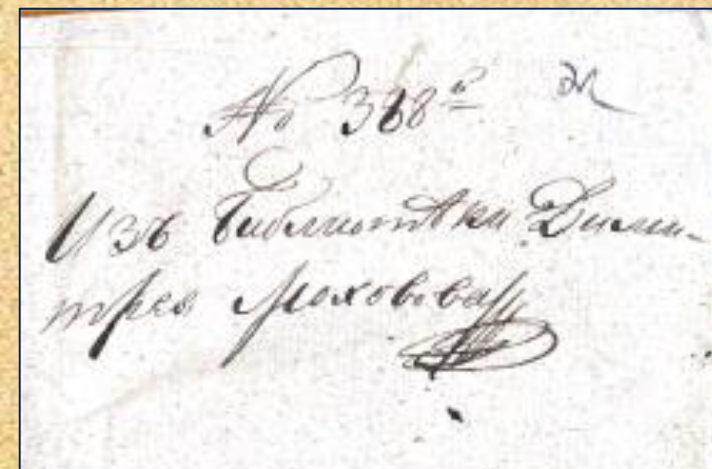 No 388й
Изъ библиотѣки Дими-
трея Моховова